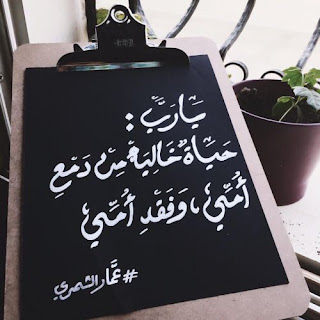 يَا رَبّ :
حَيَاةٌ خَالِيَة مِنْ دَمْعِ
أُمِّي ، وَفَقْدِ أُمِّي
#عمَّار الشمري